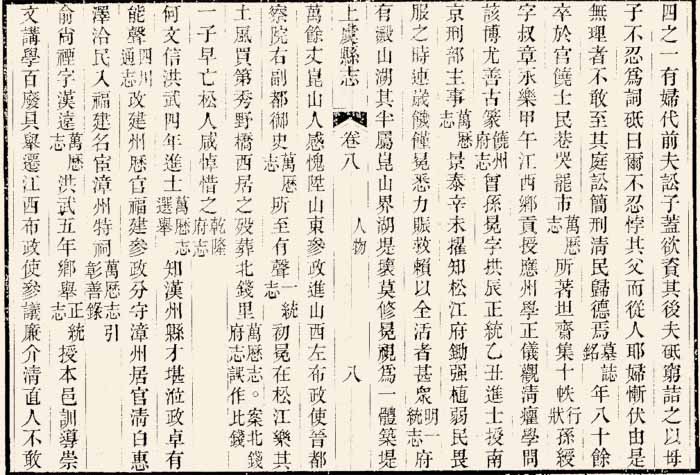 四之一有婦代前夫訟子蓋欲資其後夫砥窮詰之以毋
子不忍爲詞砥曰爾不忍悖其父而從人耶婦慚伏由是
無理者不敢至其庭訟簡刑清民歸德焉墓誌銘年八十餘
卒於官饒士民巷哭罷市萬厯志所著坦齋集十帙行狀孫綬
字叔章永樂甲午江西鄉貢授應州學正儀觀清癯學問
該博尤善古篆饒州府志曾孫晃字拱辰正統乙丑進士授南
京刑部主事萬厯志景泰辛未擢知松江府鋤强植弱民畏
服之時連歲饑饉晃悉力賑救賴以全活者甚衆明一統志府
有澱山湖其半屬崑山界湖堤壞莫修晃視爲一體築堤
上虞縣志
卷八
人物
八
萬餘丈崑山人感愧陞山東參政進山西左布政使晉都
察院右副都御史萬厯志所至有聲一統志初晃在松江樂其
土風買第秀野橋西居之歿葬北錢里萬厯志。案北錢府志誤作比錢
一子早亡松人咸悼惜之乾隆府志
何文信洪武四年進士萬厯志選舉知漢州縣才堪涖政卓有
能聲四川通志改建州歷官福建參政分守漳州居官清白惠
澤洽民入福建名宦漳州特祠萬厯志引彰善錄
俞尚禋字漢遠萬厯志洪武五年鄉舉正統志授本邑訓導崇
文講學百廢具舉遷江西布政使參議廉介清直人不敢